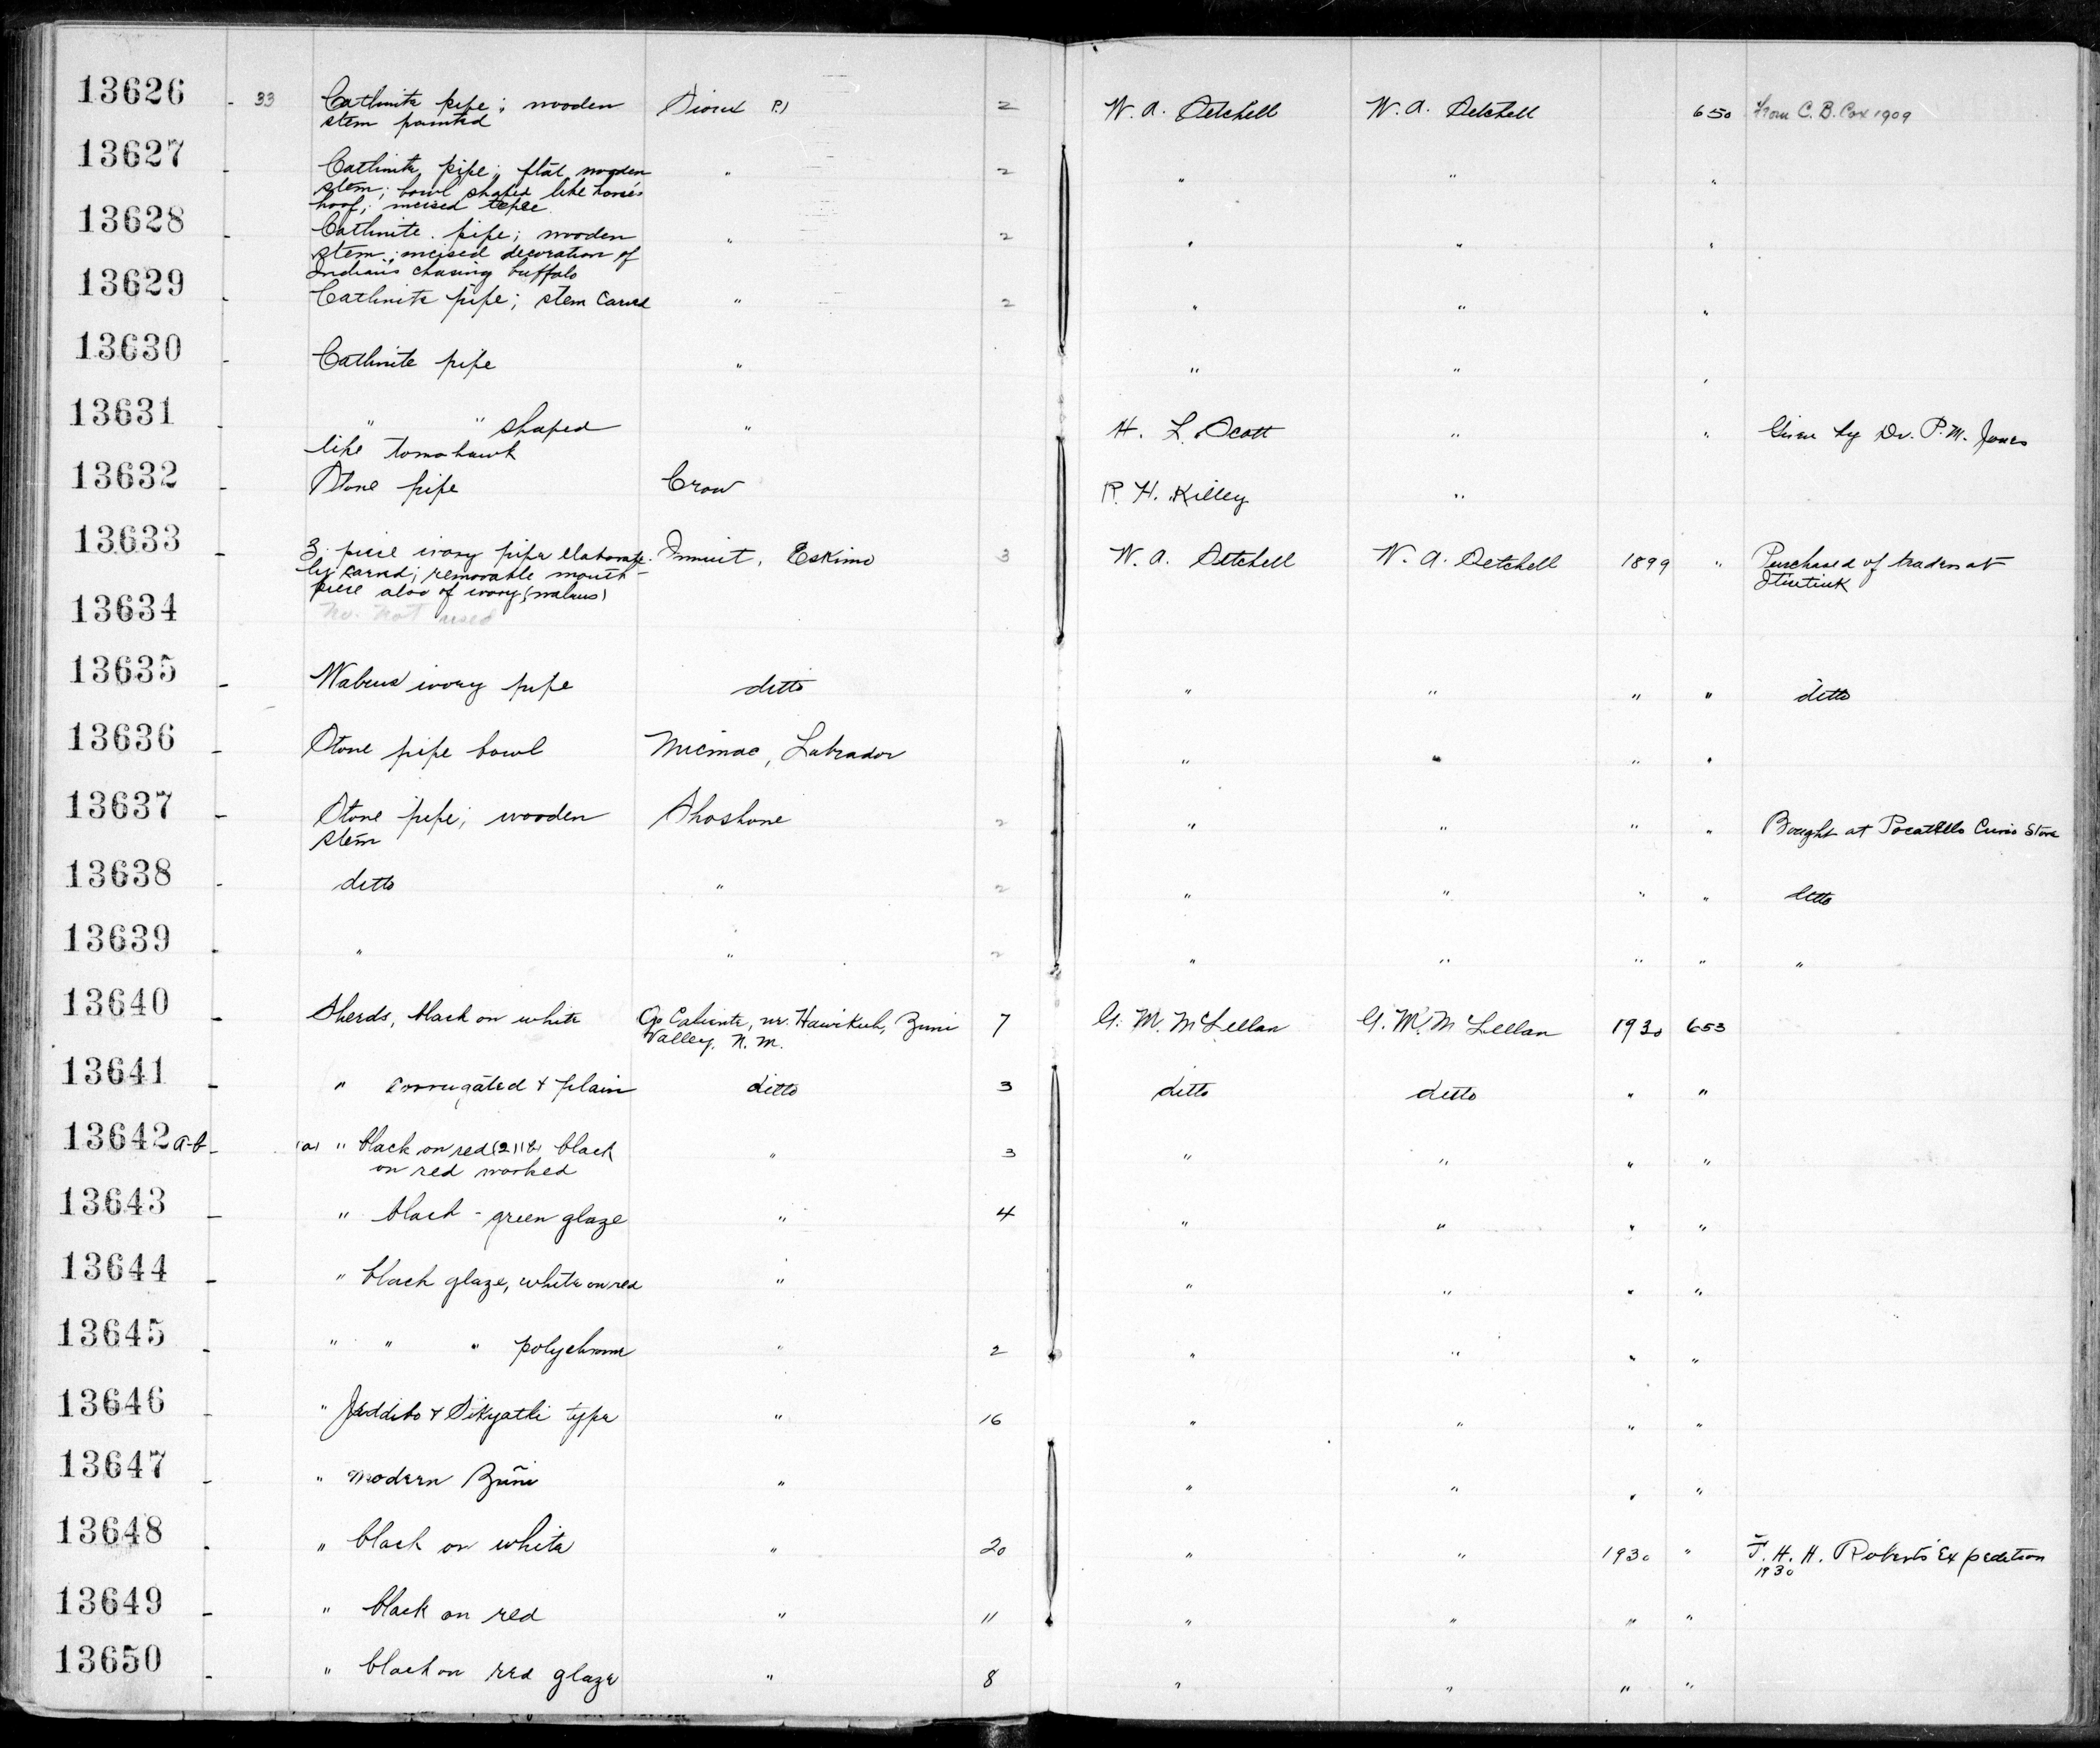 13626 - 33 Catlinite pipe; wooden Sioux P.) 2 W. A. Setchell W. A. Setchell 650 From C. B. Cox 1909
stem painted
13627 - Catlinite pipe; flat wooden " 2 " " "
stem; bowl shaped like horse's
hoof; incised tepee
13628 - Catlinite pipe; wooden " 2 " " "
stem; incised decoration of
Indians chasing buffalo
13629 - Catlinite pipe; stem carved " 2 " " "
13630 - Catlinite pipe " " " "
13631 - " " shaped " H. L. Scott " " Given by Dr. P. M. Jones
like tomahawk
13632 - Stone pipe Crow R. H. Killey "
13633 - 3 piece ivory pipe elaborate- Innuit, Eskimo 3 W. A. Setchell W. A. Setchell 1899 " Purchased of traders at
ly carved; removable mouth-
piece also of ivory (walrus)
13634 No. not used
13635 - Walrus ivory pipe ditto " " " " ditto
13636 - Stone pipe bowl Micmac, Labrador " " " "
13637 - Stone pipe; wooden Shoshone 2 " " " " Bought at Pocatello Curio Store
stem
13638 - ditto " 2 " " " " ditto
13639 - " " 2 " " " " "
13640 - Sherds, black on white Ojo Caliente, nr. Hawikuh, Zuni 7 G. M. McLellan G. M. McLellan 1930 653
Valley, N. M.
13641 - " corrugated + plain ditto 3 ditto ditto " "
13642 a-b - (a) " black on red (2) (b) black " 3 " " " "
on red worked
13643 - " black - green glaze " 4 " " " "
13644 - " black glaze, white on red " " " " "
13645 - " " " polychrome " 2 " " " "
13646 - " Jeddito + Sikyatki type " 16 " " " "
13647 - " modern Zuñi " " " " "
13648 - " black on white " 20 " " 1930 " F. H. H. Roberts Expedition
1930
13649 - " black on red " 11 " " " "
13650 - " black on red glaze " 8 " " " "